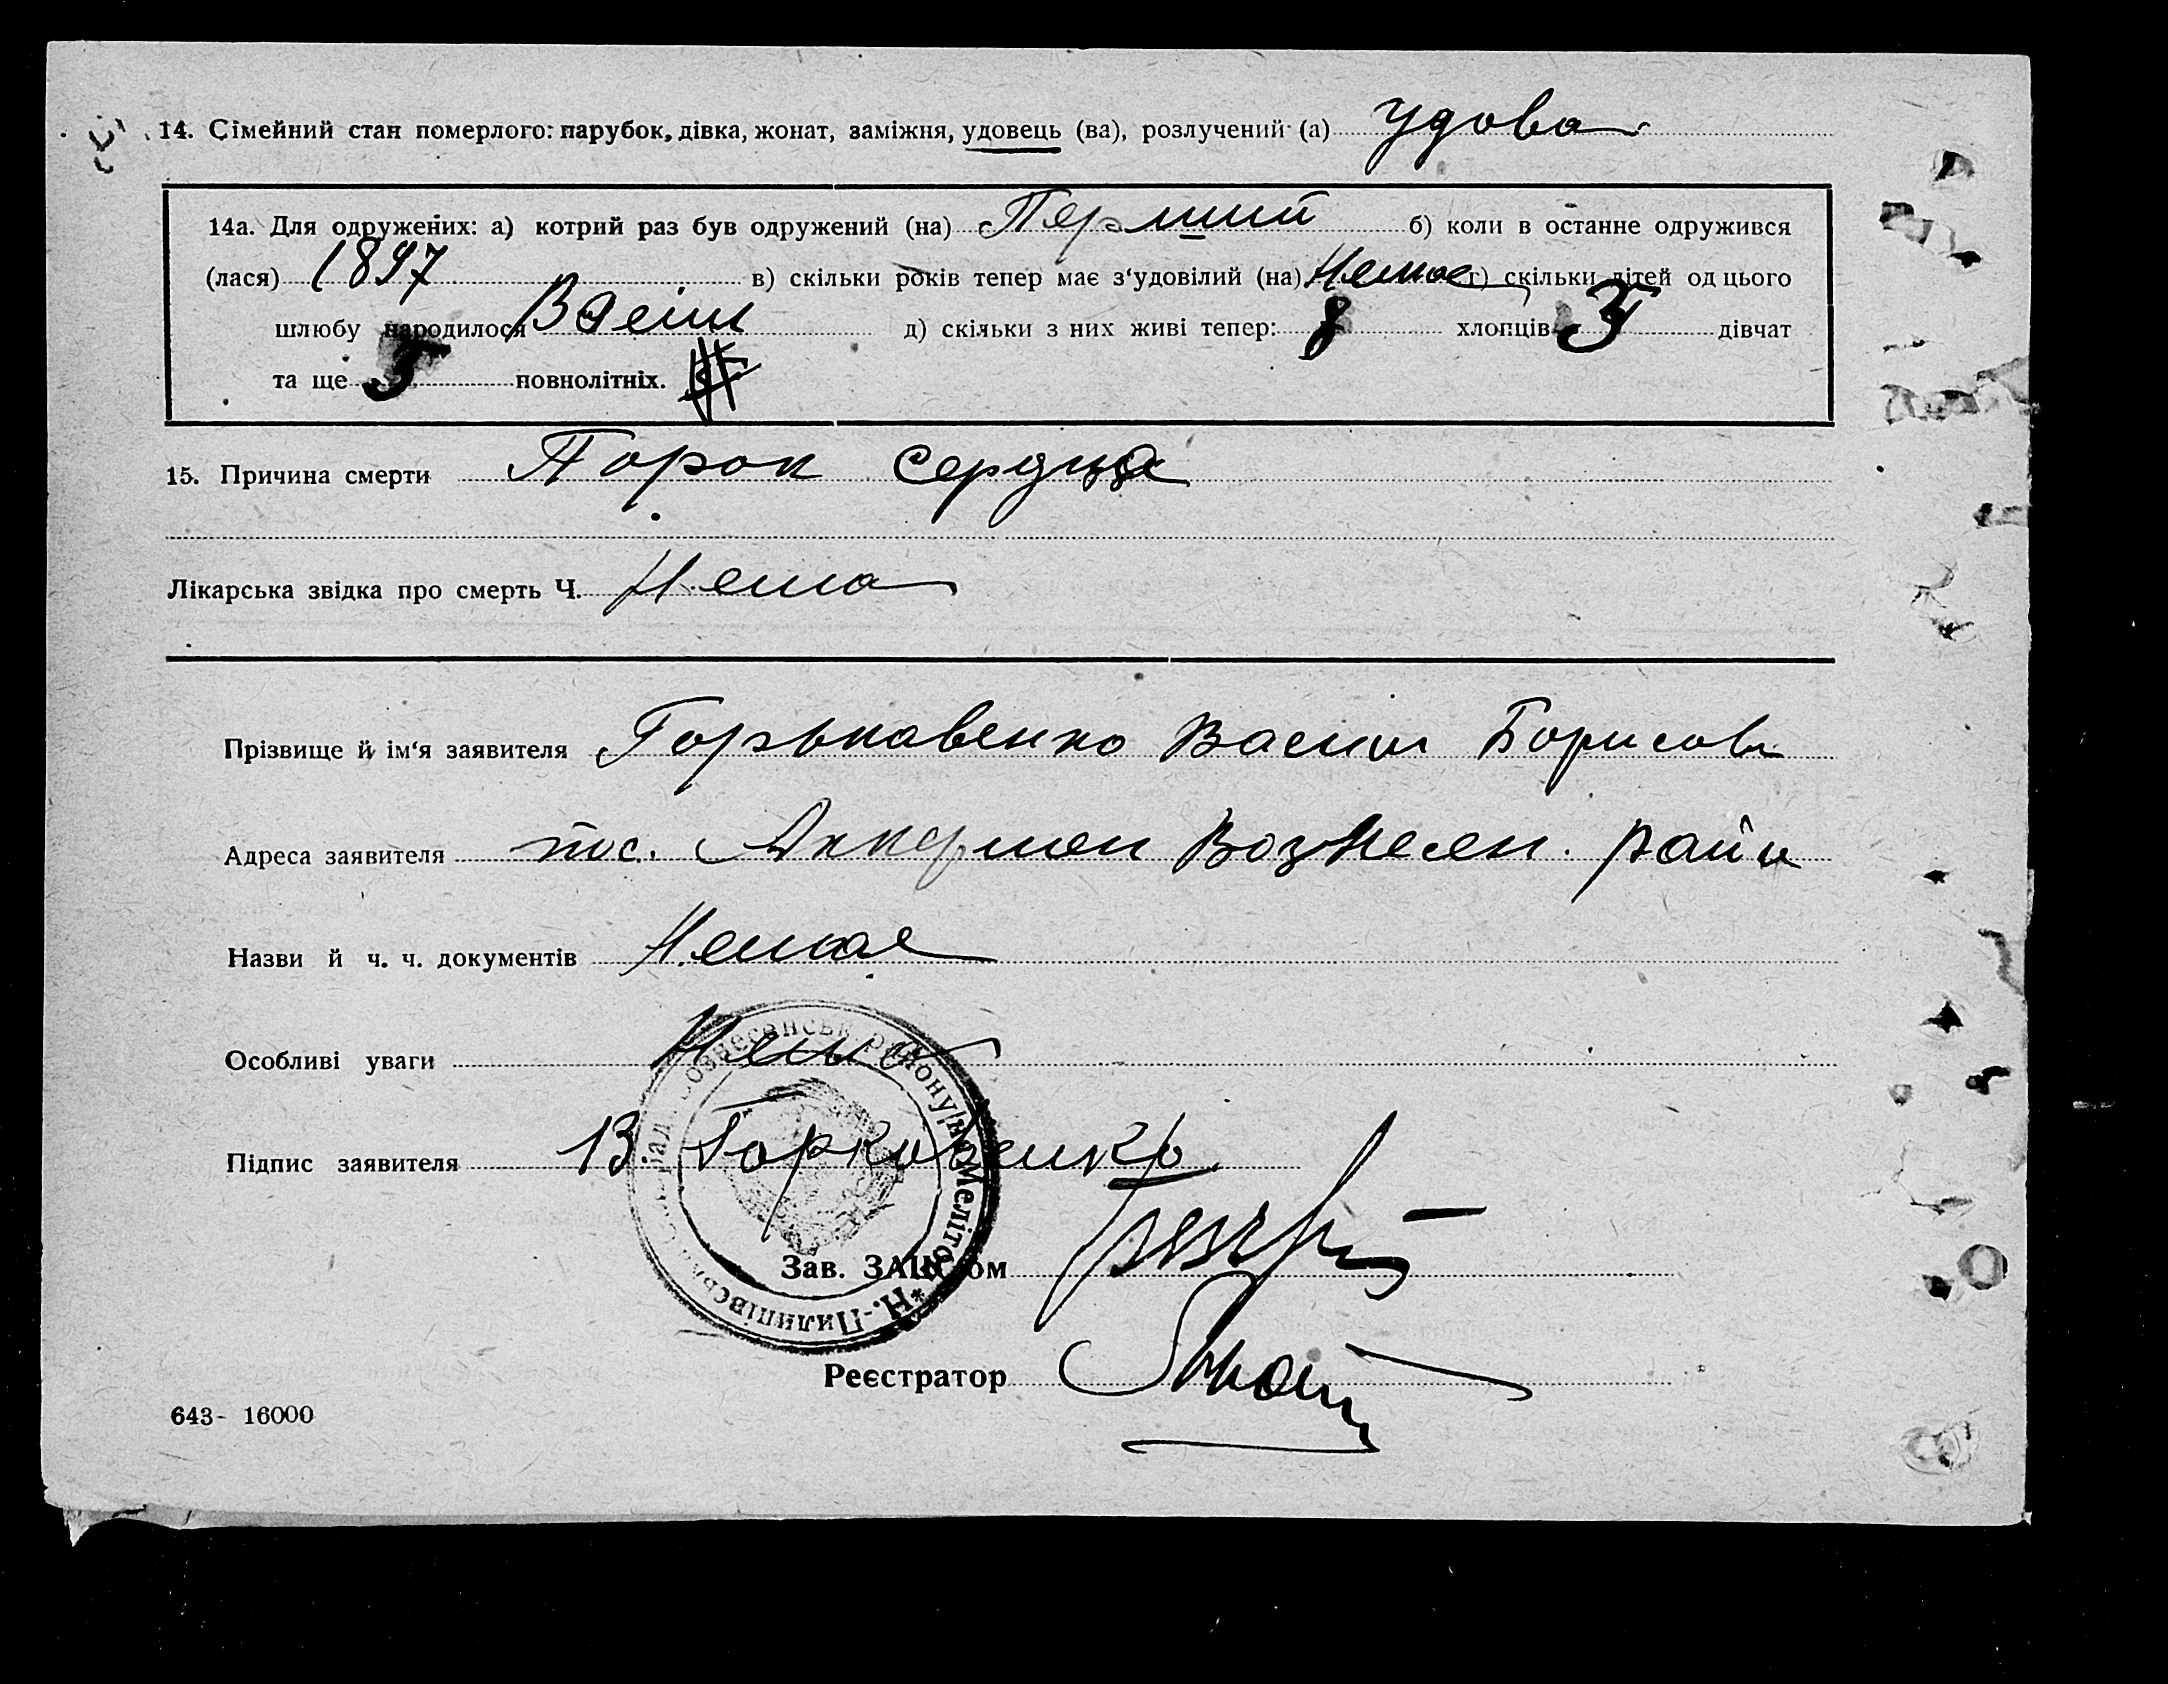 14. Сімейний стан померлого: парубок, дівка, жонат, заміжня, удовець (ва), розлучений (а) удова
14а. Для одружених: а) котрий раз був одружений (на) Перший б) коли в останне одружився
(лася) 1897 в) скільки років тепер має з‘удовілий (на) Немае г) скільки дітей од цього
шлюбу народилося д) скільки з них живі тепер: хлопців дівчат
та ще 5 повнолітніх.
15. Причина смерти Порок сердца
Лікарська звідка про смерть Ч. Нема
Прізвище й ім‘я заявителя Горькавенко Васил Борисов
Адреса заявителя пос. Аккермен Вознесен. район
Назви й ч. ч. документів Немае
Особливі уваги Нема
Підпис заявителя В. Горковенко
Зав. ЗАГС‘ом
Реєстратор
643- 16000